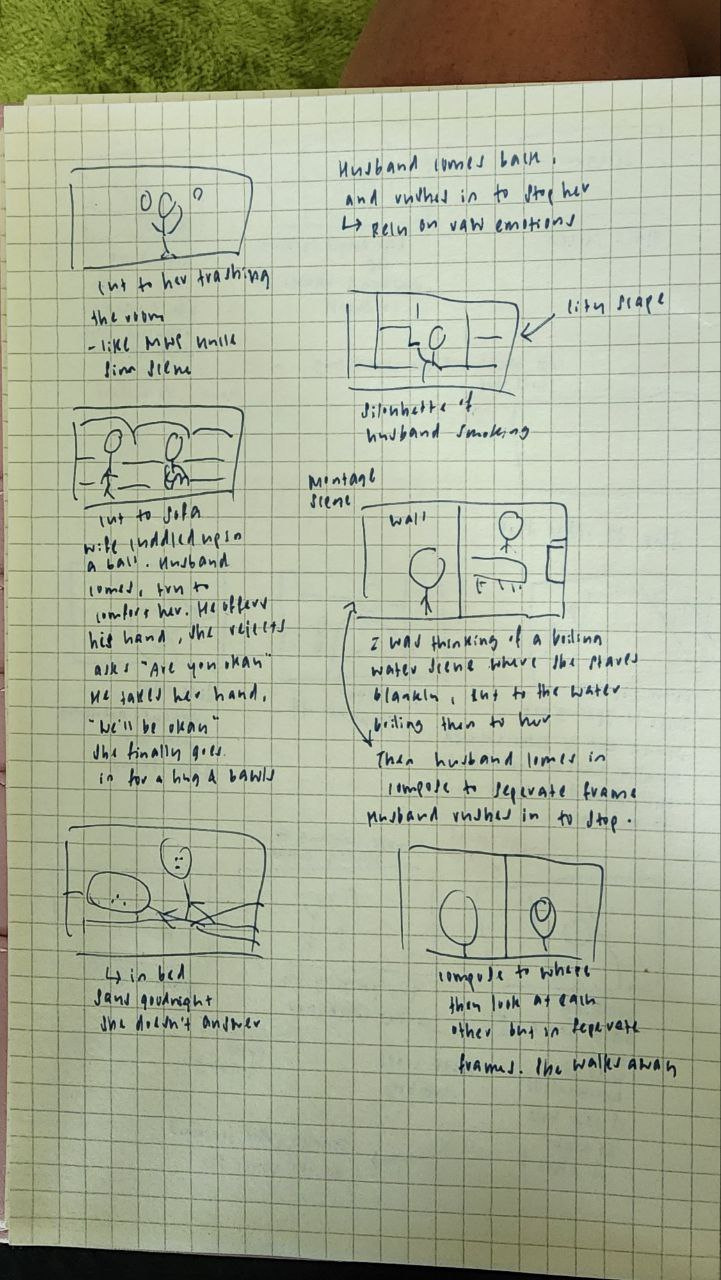 Cut to her trashing
the room
- like
scene
Cut to sofa
wife cuddled up in
a ball. Husband
comes, try to
comfort her. He offers
his hand, she rejects
asks "Are you okay"
He takes her hand,
"We'll be okay"
She finally goes
in for a hug & bawls
↳ in bed
says goodnight
she doesn't answer
Husband comes back,
and rushes in to stop her
↳ Rely on raw emotions
City scape
Silouhette of
husband smoking
Montage
scene
Wall
I was thinking of a boiling
water scene where she stares
blankly, cut to the water
boiling then to her
Then husband comes in
compose to seperate frame
Husband rushes in to stop.
compose to where
they look at each
other but in seperate
frames. She walks away